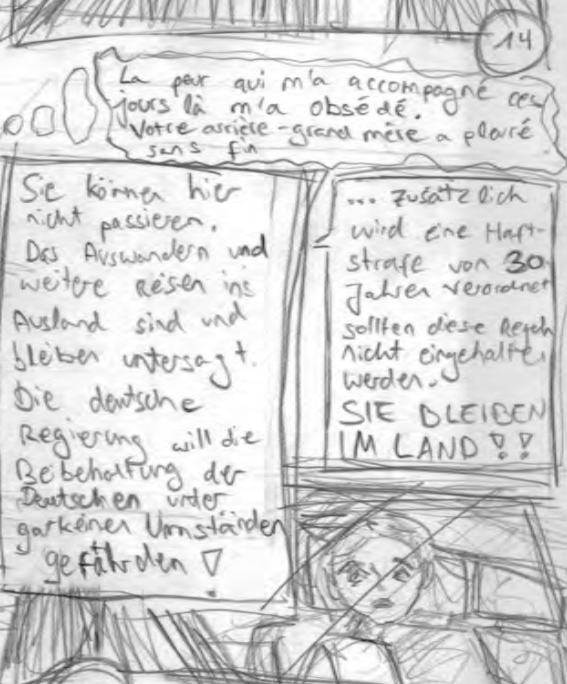 14
La peur qui m'a accompagné ces
jours là m'a obsédé.
Votre arrière-grand mère a pleuré
sans fin
Sie können hier
nicht passieren.
Das Auswandern und
weitere Reisen ins
Ausland sind und
bleiben untersagt.
Die deutsche
Regierung will die
Beibehaltung der
Deutschen unter
garkeinen Umständen
gefährden !
... zusätzlich
wird eine Haft-
strafe von 30
Jahren verordnet
sollten diese Regeln
nicht eingehalten
werden.
SIE BLEIBEN
IM LAND !!